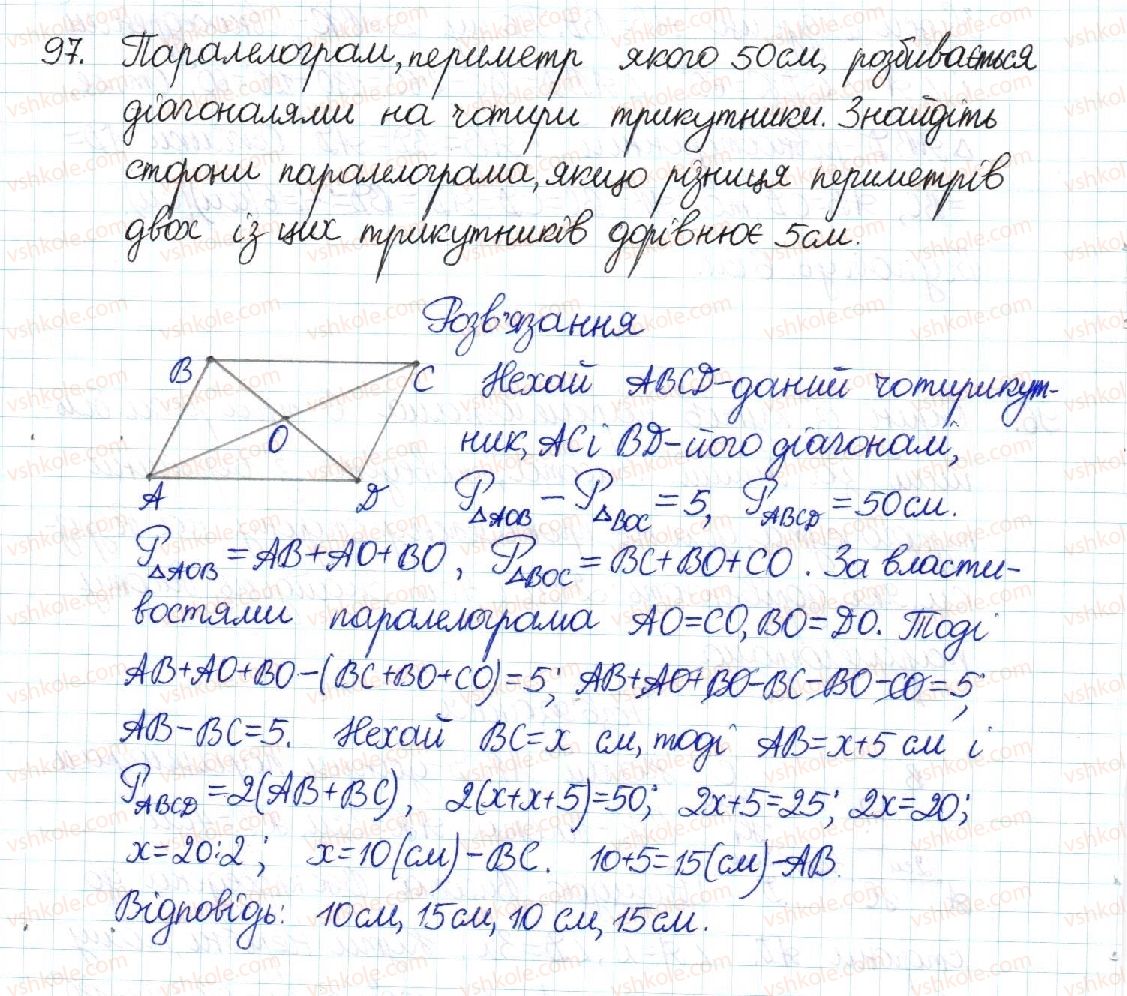 97. Паралелограм, периметр якого 50см, розбивається
діагоналями на чотири трикутники. Знайдіть
сторони паралелограма, якщо різниця периметрів
двох із цих трикутників дорівнює 5см.
Розв'язання
B
C
O
A
D
Нехай ABCD-даний чотирикут-
ник, AC і BD-його діагоналі,
P△AOB - P△BOC = 5, PABCD = 50см.
P△AOB = AB+AO+BO, P△BOC = BC+BO+CO. За власти-
востями паралелограма AO=CO, BO=DO. Тоді
AB+AO+BO-(BC+BO+CO)=5; AB+AO+BO-BC-BO-CO=5;
AB-BC=5. Нехай BC=x см, тоді AB=x+5 см і
PABCD=2(AB+BC), 2(x+x+5)=50; 2x+5=25; 2x=20;
x=20:2; x=10(см)-BC. 10+5=15(см)-AB.
Відповідь: 10см, 15см, 10 см, 15см.